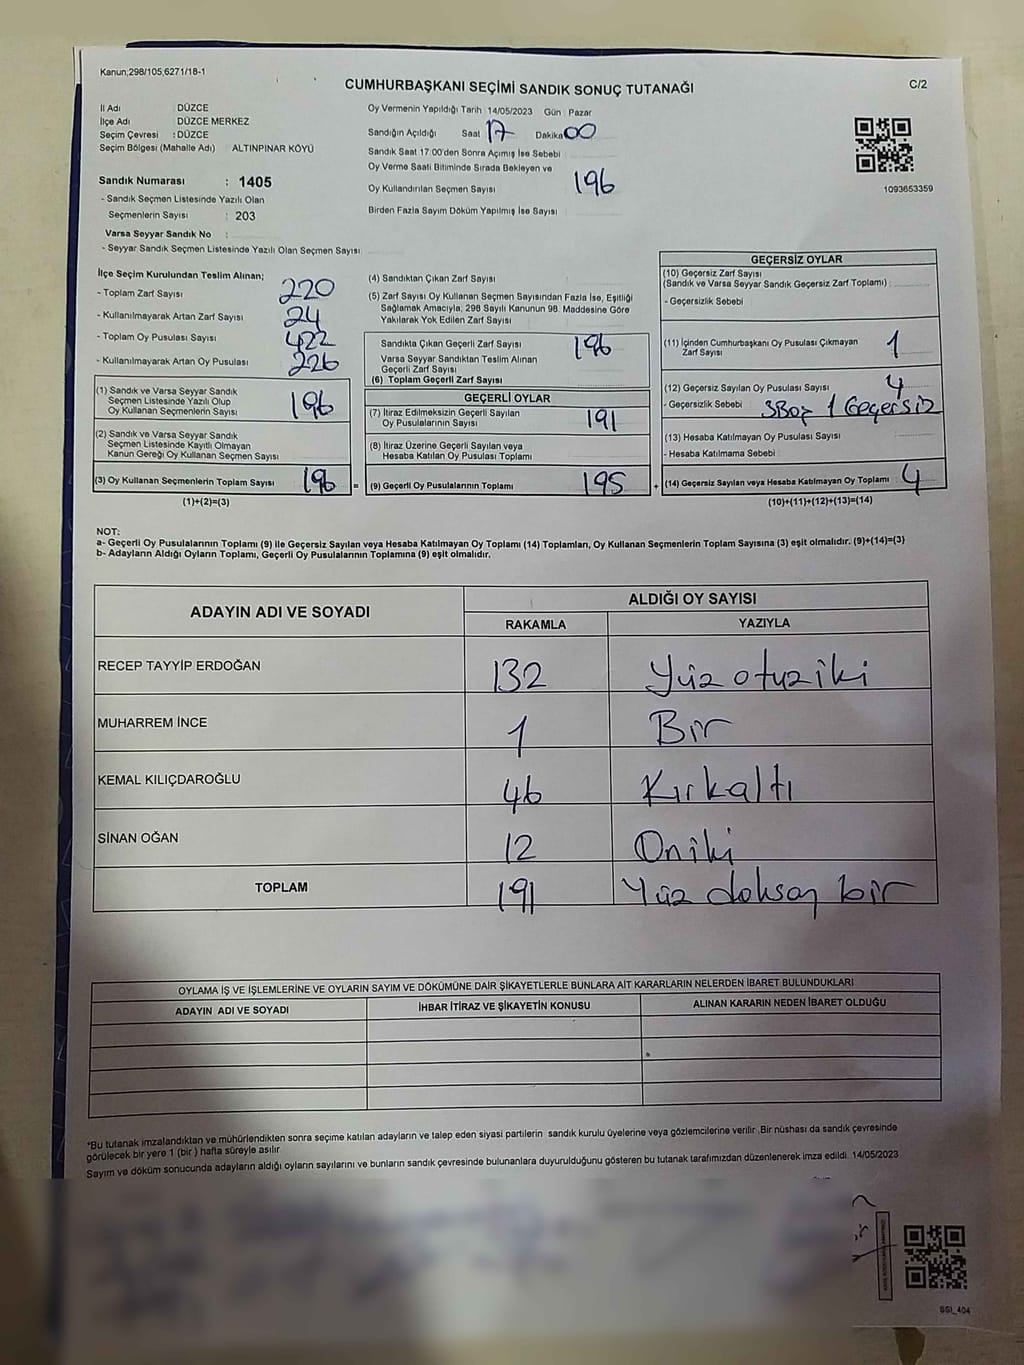 Kanun;298/105,6271/18-1
CUMHURBAŞKANI SEÇİMİ SANDIK SONUÇ TUTANAĞI
C/2
İl Adı : DÜZCE
İlçe Adı : DÜZCE MERKEZ
Seçim Çevresi : DÜZCE
Seçim Bölgesi (Mahalle Adı) ALTINPINAR KÖYÜ
Oy Vermenin Yapıldığı Tarih 14/05/2023 Gün Pazar
Sandığın Açıldığı Saat 17 Dakika 00
Sandık Saat 17:00'den Sonra Açımış İse Sebebi
Oy Verme Saati Bitiminde Sırada Bekleyen ve
Oy Kullandırılan Seçmen Sayısı 196
Birden Fazla Sayım Döküm Yapılmış İse Sayısı
1093653359
Sandık Numarası : 1405
- Sandık Seçmen Listesinde Yazılı Olan
Seçmenlerin Sayısı : 203
Varsa Seyyar Sandık No :
- Seyyar Sandık Seçmen Listesinde Yazılı Olan Seçmen Sayısı
İlçe Seçim Kurulundan Teslim Alınan;
- Toplam Zarf Sayısı 220
- Kullanılmayarak Artan Zarf Sayısı 24
- Toplam Oy Pusulası Sayısı 422
- Kullanılmayarak Artan Oy Pusulası 226
(1) Sandık ve Varsa Seyyar Sandık
Seçmen Listesinde Yazılı Olup
Oy Kullanan Seçmenlerin Sayısı 196
(2) Sandık ve Varsa Seyyar Sandık
Seçmen Listesinde Kayıtlı Olmayan
Kanun Gereği Oy Kullanan Seçmen Sayısı
(3) Oy Kullanan Seçmenlerin Toplam Sayısı 196 =
(1)+(2)=(3)
(4) Sandıktan Çıkan Zarf Sayısı
(5) Zarf Sayısı Oy Kullanan Seçmen Sayısından Fazla İse, Eşitliği
Sağlamak Amacıyla, 298 Sayılı Kanunun 98. Maddesine Göre
Yakılarak Yok Edilen Zarf Sayısı
Sandıkta Çıkan Geçerli Zarf Sayısı 196
Varsa Seyyar Sandıktan Teslim Alınan
Geçerli Zarf Sayısı
(6) Toplam Geçerli Zarf Sayısı
GEÇERLİ OYLAR
(7) İtiraz Edilmeksizin Geçerli Sayılan
Oy Pusulalarının Sayısı 191
(8) İtiraz Üzerine Geçerli Sayılan veya
Hesaba Katılan Oy Pusulası Toplamı
(9) Geçerli Oy Pusulalarının Toplamı 195 +
GEÇERSİZ OYLAR
(10) Geçersiz Zarf Sayısı
(Sandık ve Varsa Seyyar Sandık Geçersiz Zarf Toplamı) :
- Geçersizlik Sebebi
(11) İçinden Cumhurbaşkanı Oy Pusulası Çıkmayan
Zarf Sayısı 1
(12) Geçersiz Sayılan Oy Pusulası Sayısı 4
- Geçersizlik Sebebi 3Boş 1 Geçersiz
(13) Hesaba Katılmayan Oy Pusulası Sayısı
- Hesaba Katılmama Sebebi
(14) Geçersiz Sayılan veya Hesaba Katılmayan Oy Toplamı 4
(10)+(11)+(12)+(13)=(14)
NOT:
a- Geçerli Oy Pusulalarının Toplamı (9) ile Geçersiz Sayılan veya Hesaba Katılmayan Oy Toplamı (14) Toplamları, Oy Kullanan Seçmenlerin Toplam Sayısına (3) eşit olmalıdır. (9)+(14)=(3)
b- Adayların Aldığı Oyların Toplamı, Geçerli Oy Pusulalarının Toplamına (9) eşit olmalıdır.
ADAYIN ADI VE SOYADI
ALDIĞI OY SAYISI
RAKAMLA YAZIYLA
RECEP TAYYİP ERDOĞAN 132 Yüz otuz iki
MUHARREM İNCE 1 Bir
KEMAL KILIÇDAROĞLU 46 Kırkaltı
SİNAN OĞAN 12 Oniki
TOPLAM 191 Yüz doksan bir
OYLAMA İŞ VE İŞLEMLERİNE VE OYLARIN SAYIM VE DÖKÜMÜNE DAİR ŞİKAYETLERLE BUNLARA AİT KARARLARIN NELERDEN İBARET BULUNDUKLARI
ADAYIN ADI VE SOYADI İHBAR İTİRAZ VE ŞİKAYETİN KONUSU ALINAN KARARIN NEDEN İBARET OLDUĞU
*Bu tutanak imzalandıktan ve mühürlendikten sonra seçime katılan adayların ve talep eden siyasi partilerin sandık kurulu üyelerine veya gözlemcilerine verilir. Bir nüshası da sandık çevresinde
görülecek bir yere 1 (bir) hafta süreyle asılır
Sayım ve döküm sonucunda adayların aldığı oyların sayılarını ve bunların sandık çevresinde bulunanlara duyurulduğunu gösteren bu tutanak tarafımızdan düzenlenerek imza edildi. 14/05/2023
SSI_404